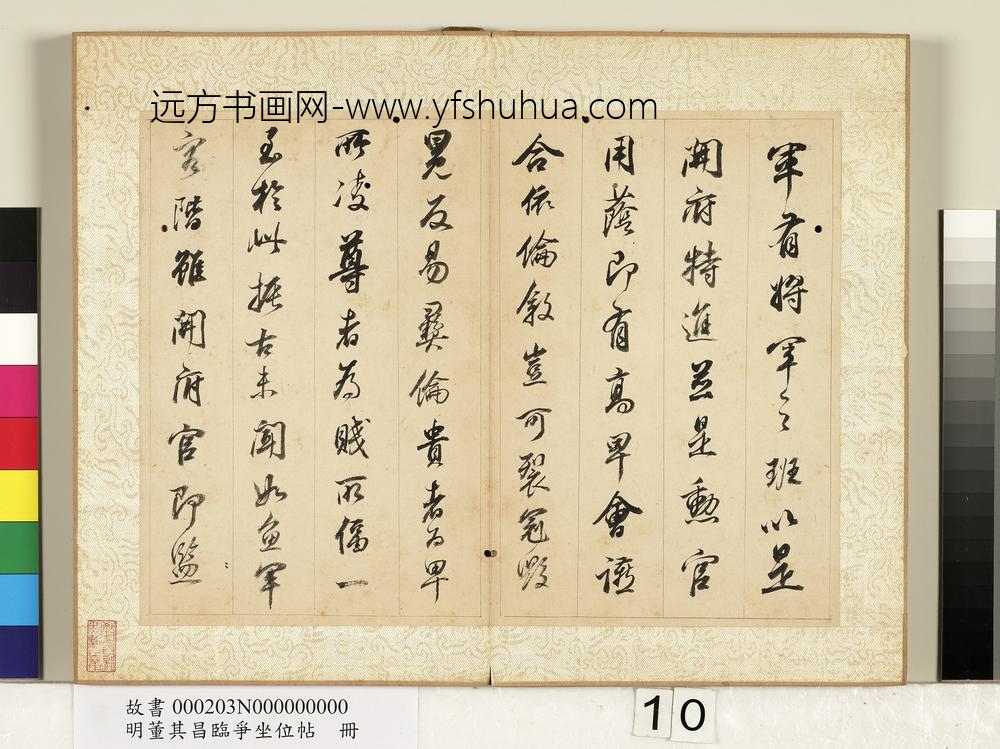 远方书画网-www.yfshuhua.com
軍有將軍之班以是
開府特進並是勳官
用蔭即有高卑會讌
合依倫敘豈可裂冠毀
冕反易彝倫貴者為卑
所凌尊者為賤所偪一
至於此振古未聞如魚軍
容階雖開府官即監
故書 000203N000000000
明董其昌臨爭坐位帖 冊
10